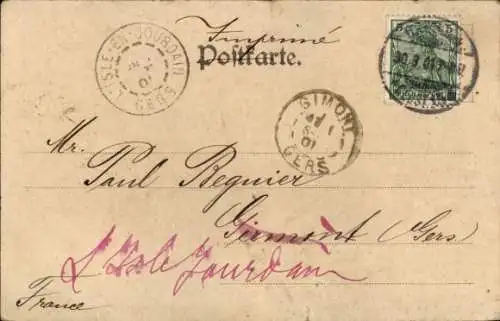 Imprimé
Postkarte.
L'ISLE-EN-JOURDAIN
GERS
GIMONT
GERS
Mr.
Paul Beguier
Gimont
(Gers.)
L'Isle Jourdain
France